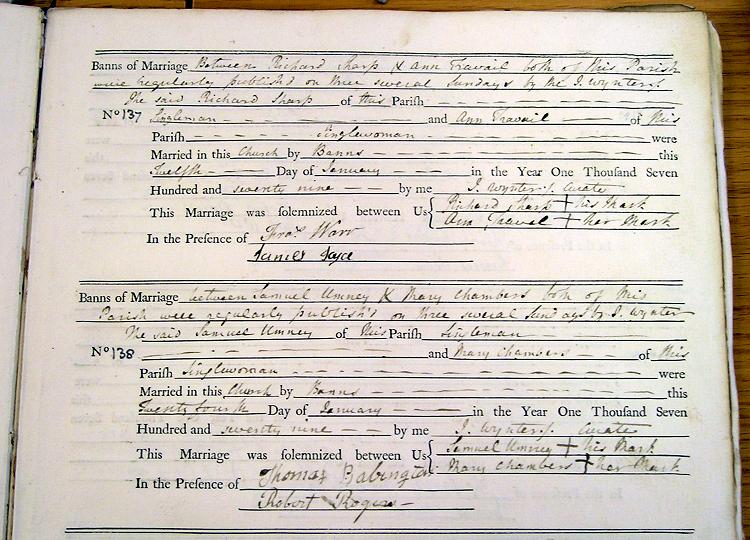 Banns of Marriage Between Richard Sharp & Ann Travail both of this Parish
were regularly published on three several Sundays by the J. Wynter
The said Richard Sharp of this Parish
No 137 Singleman and Ann Travail of this
Parish Singlewoman were
Married in this Church by Banns this
Twelfth Day of January in the Year One Thousand Seven
Hundred and seventy nine by me J. Wynter Curate
This Marriage was solemnized between Us Richard Sharp + his Mark
Ann Travel + her Mark
In the Presence of Fras Warr
Banns of Marriage between Samuel Umney & Mary Chambers both of this
Parish were regularly publish'd on three several Sundays by J. Wynter
The said Samuel Umney of this Parish Singleman
No 138 and Mary Chambers of this
Parish Singlewoman were
Married in this Church by Banns this
Twenty fourth Day of January in the Year One Thousand Seven
Hundred and seventy nine by me J. Wynter Curate
This Marriage was solemnized between Us Samuel Umney + his Mark
Mary Chambers + her Mark
In the Presence of Thomas Babington
Robert Rogers